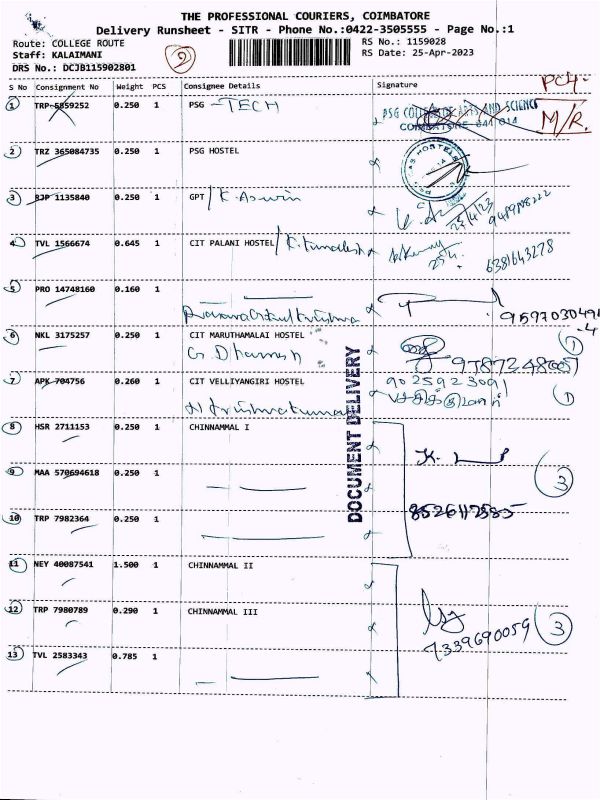 THE PROFESSIONAL COURIERS, COIMBATORE
Delivery Runsheet - SITR - Phone No.:0422-3505555 - Page No.:1
Route: COLLEGE ROUTE
RS No.: 1159028
Staff: KALAIMANI
RS Date: 25-Apr-2023
DRS No.: DCJB115902801
2
S No Consignment No Weight PCS Consignee Details Signature
PCH-
M/R.
1 TRP 5859252 0.250 1 PSG TECH
PSG COLLEGE OF ARTS AND SCIENCE
COIMBATORE 641 014
2 TRZ 365084735 0.250 1 PSG HOSTEL
3 BJP 1135840 0.250 1 GPT / K. Aswin
25/4/23
4 TVL 1566674 0.645 1 CIT PALANI HOSTEL
25/4
6381643278
5 PRO 14748160 0.160 1
9597030491
-4
6 NKL 3175257 0.250 1 CIT MARUTHAMALAI HOSTEL
G. Dharnesh
1
7 APK 704756 0.260 1 CIT VELLIYANGIRI HOSTEL
9025923091
1
DOCUMENT DELIVERY
8 HSR 2711153 0.250 1 CHINNAMMAL I
9 MAA 570694618 0.250 1
3
10 TRP 7982364 0.250 1
8526117585
11 NEY 40087541 1.500 1 CHINNAMMAL II
12 TRP 7980789 0.290 1 CHINNAMMAL III
3
7339690059
13 TVL 2583343 0.785 1